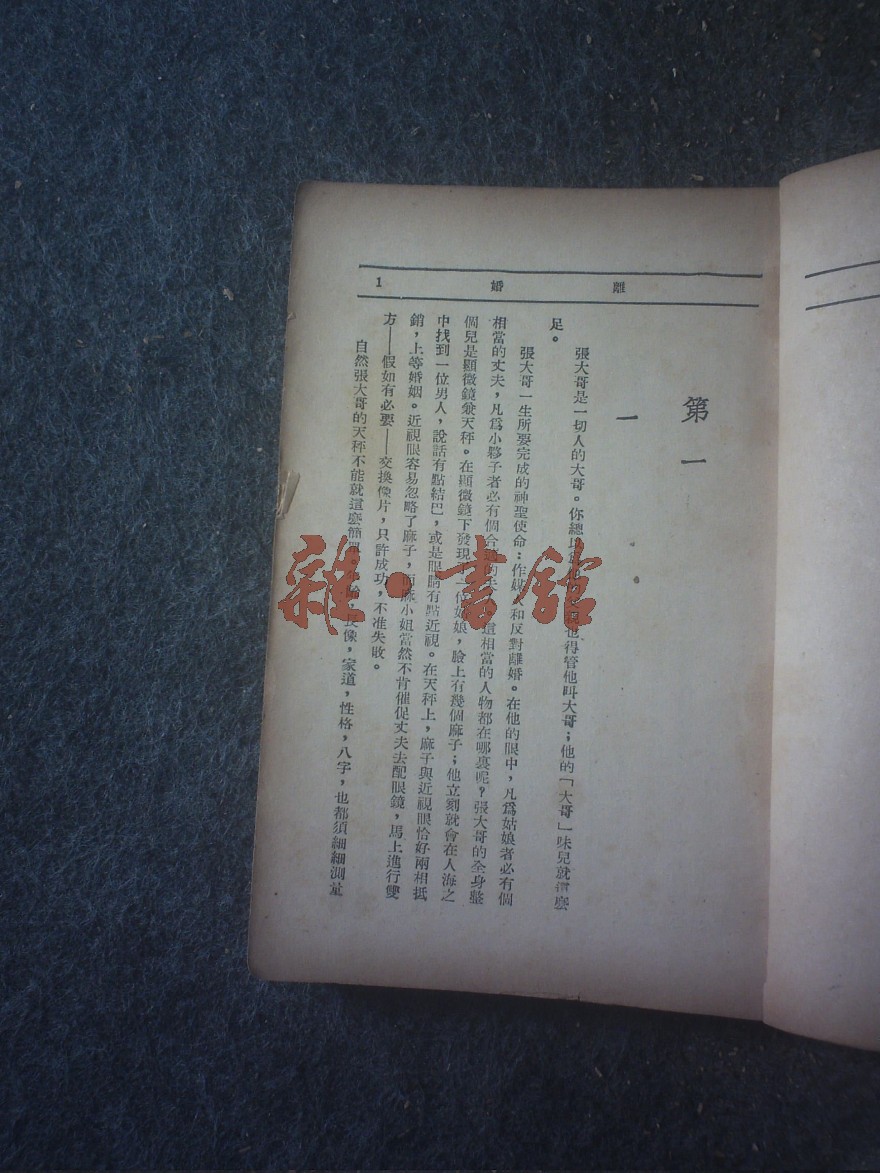 離婚 1
第一
一
張大哥是一切人的大哥。你總以爲 也得管他叫大哥;他的「大哥」味兒就這麼
足。
張大哥一生所要完成的神聖使命:作媒人和反對離婚。在他的眼中,凡爲姑娘者必有個
相當的丈夫,凡爲小夥子者必有個合適的 這相當的人物都在哪裏呢?張大哥的全身整
個兒是顯微鏡兼天秤。在顯微鏡下發現了一位姑娘,臉上有幾個麻子;他立刻就會在人海之
中找到一位男人,說話有點結巴,或是眼睛有點近視。在天秤上,麻子與近視眼恰好兩相抵
銷,上等婚姻。近視眼容易忽略了麻子,而麻小姐當然不肯催促丈夫去配眼鏡,馬上進行雙
方——假如有必要——交換像片,只許成功,不准失敗。
自然張大哥的天秤不能就這麼簡單。 長像,家道,性格,八字,也都須細細測量
雜·書館